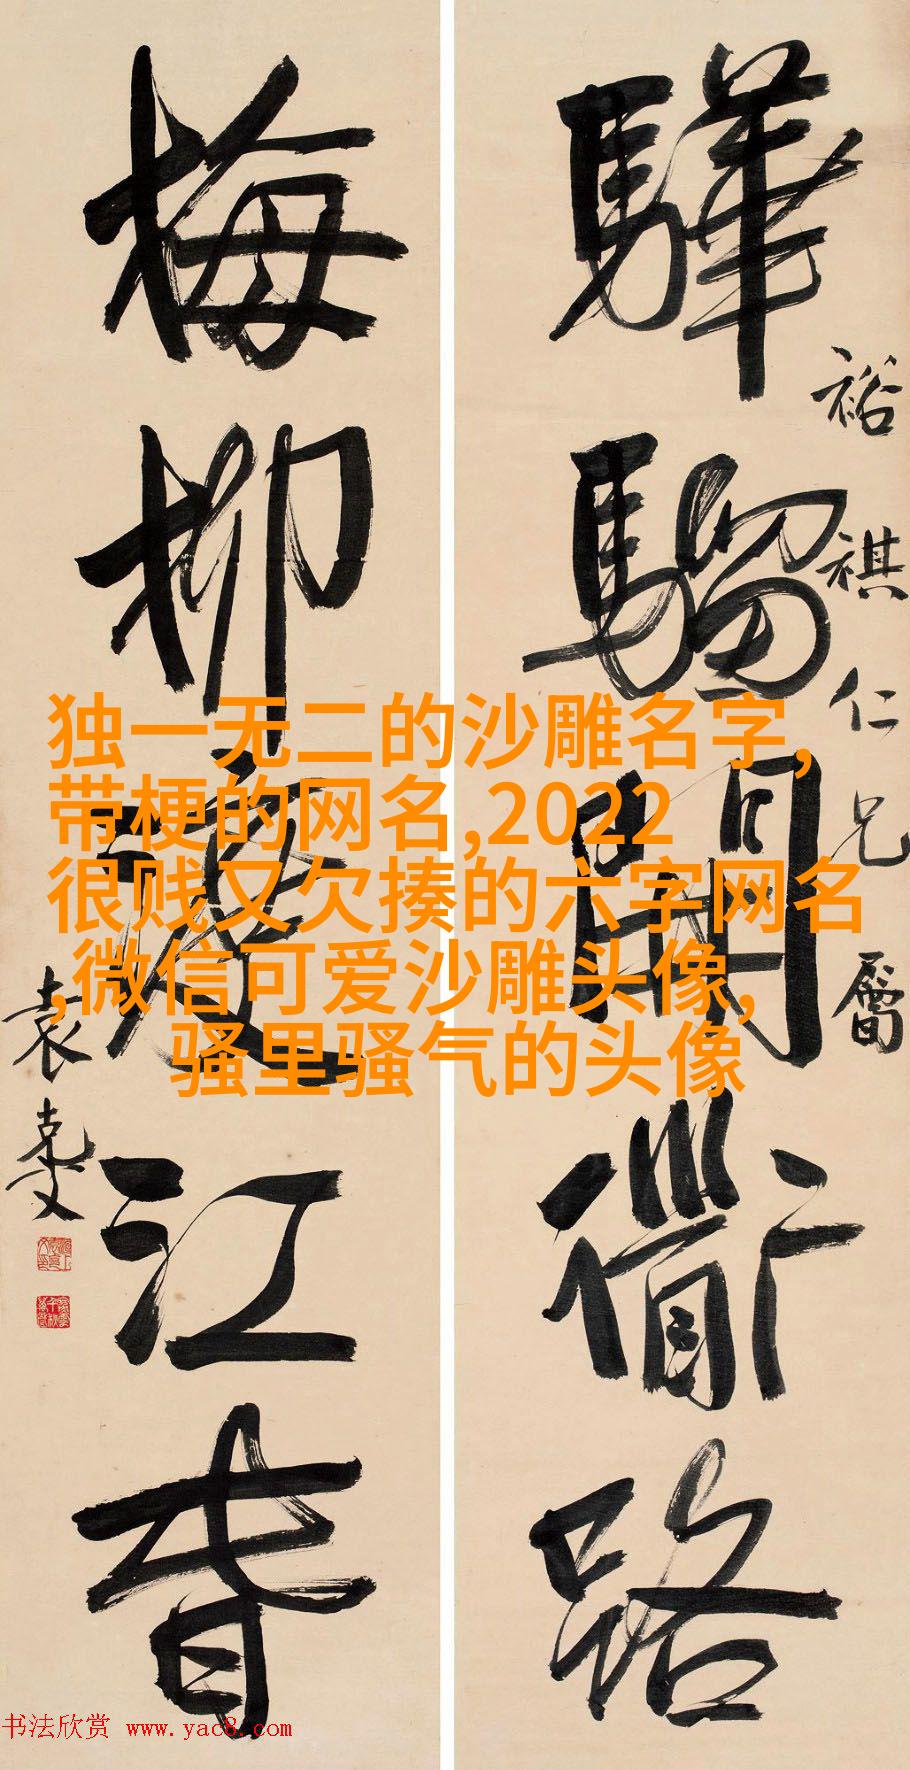 驊騮開道路
裕祺仁兄屬
梅柳渡江春
袁克文
独一无二的沙雕名字,
带梗的网名,2022
很贱又欠揍的六字网名
,微信可爱沙雕头像,
骚里骚气的头像
书法欣赏 www.yac8.com